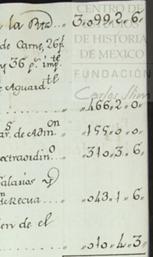 la Prd 3.099,,2,,6,,
de Carne, 26 p.s
y 36 p.r imp.te
Aguard.te
,,166,,2,,0,,
ar. de Adm.on ,,155,,0,,0,,
extraordin.o ,,310,,3,,6,,
Salarios y
Recua ,,043,,1,,6,,
en de el
,,010,,4,,3,,
CENTRO DE
DE HISTORIA
DE MÉXICO
FUNDACIÓN
Carlos Slim